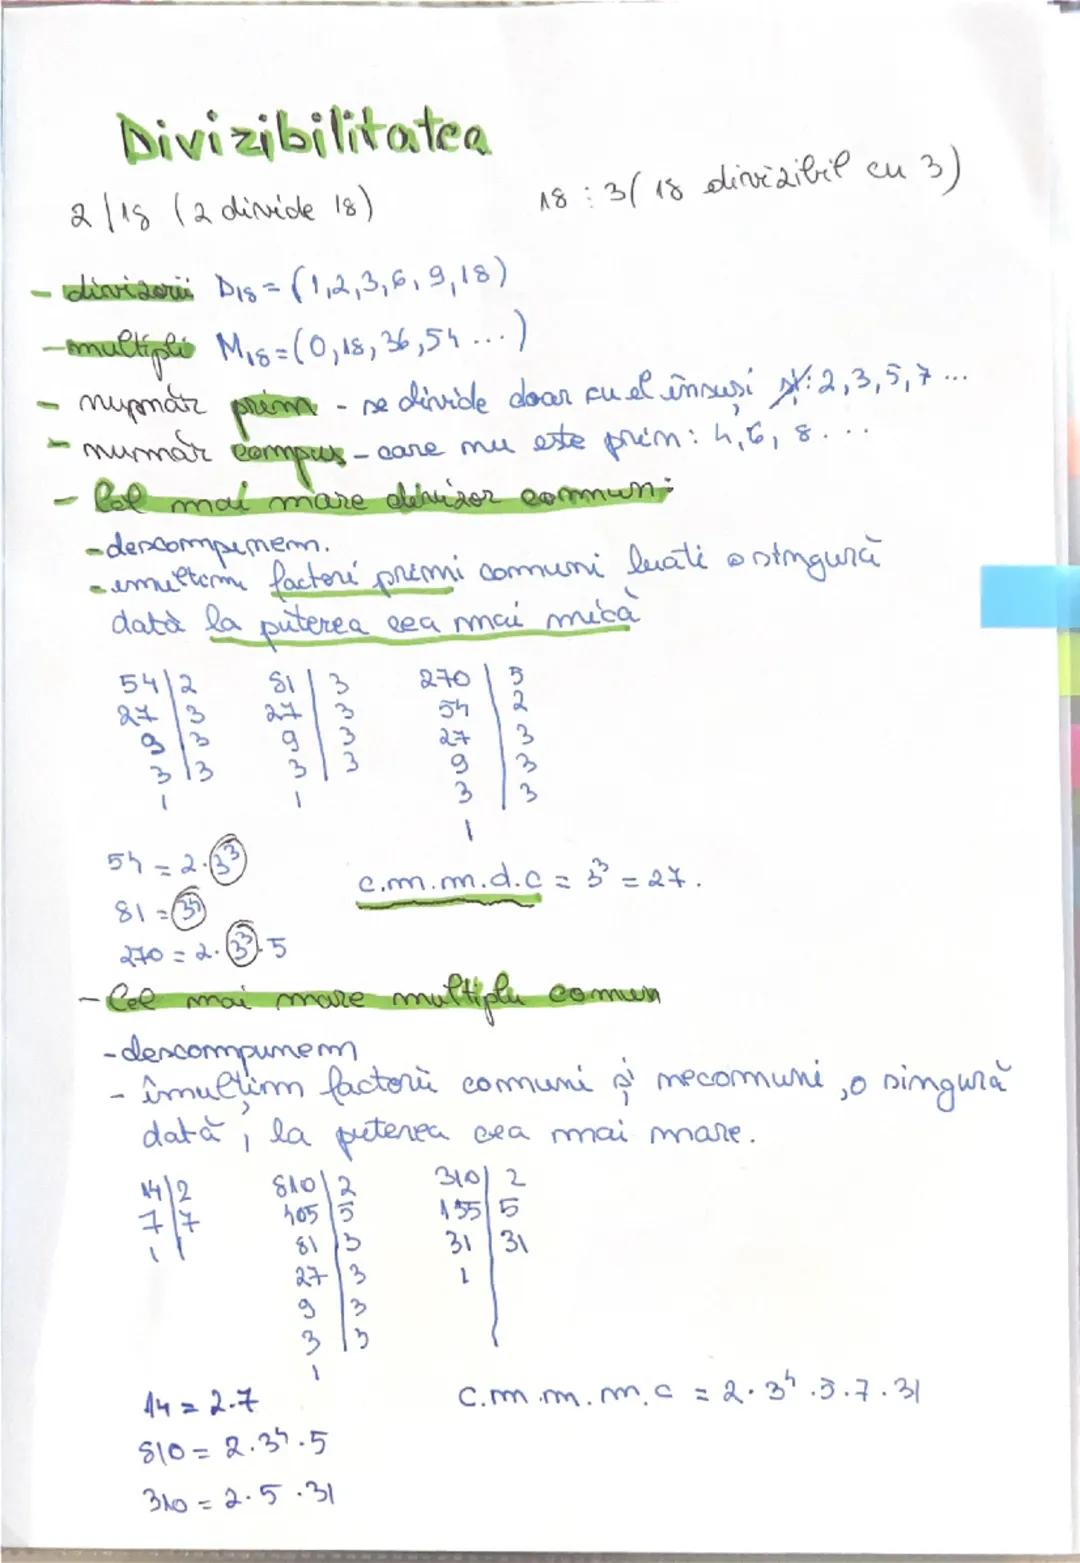 Divizibilitatea
2 | 18 (2 divide 18)
18 : 3 (18 divizibil cu 3)
- divizorii D18 = (1,2,3,6,9,18)
- multipli M18 = (0,18,36,54 ...)
- număr prim - se divide doar cu el însuși și: 2,3,5,7 ...
- număr compus - care nu este prim: 4,6,8 ...
- Cel mai mare divizor comun:
- descompunem.
- înmulțim factori primi comuni luati o singură
dată la puterea cea mai mică
54 | 2 81 | 3 270 | 5
27 | 3 27 | 3 54 | 2
9 | 3 9 | 3 27 | 3
3 | 3 3 | 3 9 | 3
1 1 3 | 3
1
54 = 2·3³
81 = 3⁴
270 = 2·3³·5
c.m.m.d.c = 3³ = 27.
- Cel mai mare multiplu comun
- descompunem
- îmulțim factorii comuni și necomuni, o singură
dată, la puterea cea mai mare.
14 | 2 810 | 2 310 | 2
7 | 7 405 | 5 155 | 5
1 | 81 | 3 31 | 31
27 | 3 1
9 | 3
3 | 3
1
14 = 2·7
810 = 2·3⁴·5
310 = 2·5·31
c.m.m.m.c = 2·3⁴·5·7·31